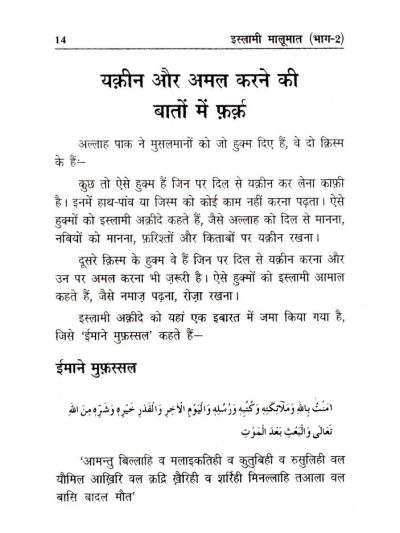 14 इस्लामी मालूमात (भाग-2)
यक़ीन और अमल करने की
बातों में फ़र्क़
अल्लाह पाक ने मुसलमानों को जो हुक्म दिए हैं, वे दो क़िस्म
के हैं—
कुछ तो ऐसे हुक्म हैं जिन पर दिल से यक़ीन कर लेना काफ़ी
है। इनमें हाथ-पांव या जिस्म को कोई काम नहीं करना पढ़ता। ऐसे
हुक्मों को इस्लामी अक़ीदे कहते हैं, जैसे अल्लाह को दिल से मानना,
नबियों को मानना, फ़रिश्तों और किताबों पर यक़ीन रखना।
दूसरे क़िस्म के हुक्म वे हैं जिन पर दिल से यक़ीन करना और
उन पर अमल करना भी ज़रूरी है। ऐसे हुक्मों को इस्लामी आमाल
कहते हैं, जैसे नमाज़ पढ़ना, रोज़ा रखना।
इस्लामी अक़ीदे को यहां एक इबारत में जमा किया गया है,
जिसे ‘ईमाने मुफ़स्सल’ कहते हैं—
ईमाने मुफ़स्सल
اٰمَنْتُ بِاللهِ وَمَلٰٓائِكَتِهٖ وَكُتُبِهٖ وَرُسُلِهٖ وَالْيَوْمِ الْاٰخِرِ وَالْقَدْرِ خَيْرِهٖ وَشَرِّهٖ مِنَ اللهِ
تَعَالٰى وَالْبَعْثِ بَعْدَ الْمَوْتِ
‘आमन्तु बिल्लाहि व मलाइकतिही व कुतुबिही व रुसुलिही वल
यौमिल आख़िरि वल क़द्रि ख़ैरिही व शर्रिही मिनल्लाहि तआला वल
बासि बादल मौत’